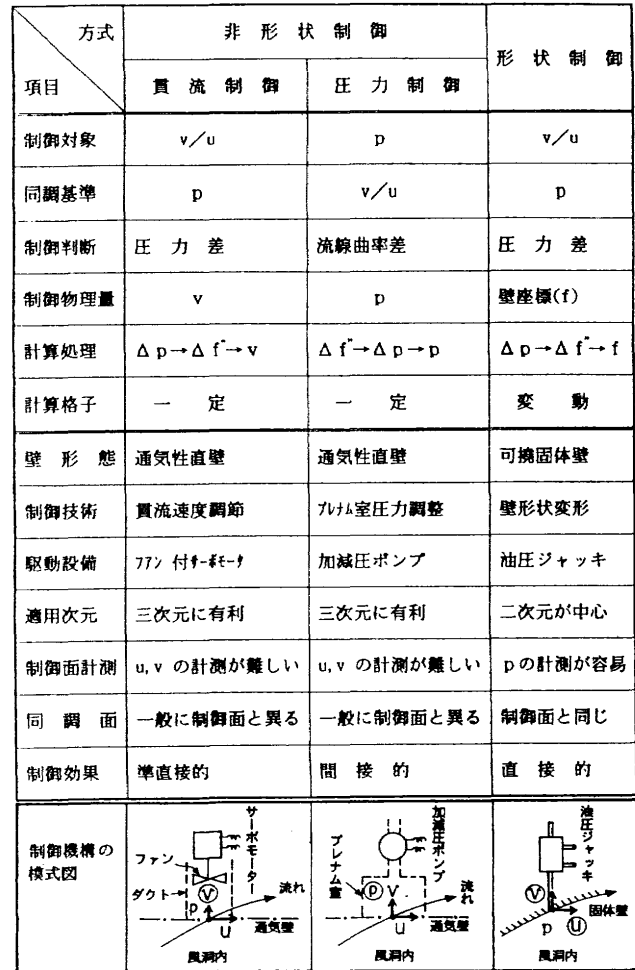 方式 非形状制御 形状制御
項目 貫流制御 圧力制御
制御対象 v/u p v/u
同調基準 p v/u p
制御判断 圧力差 流線曲率差 圧力差
制御物理量 v p 壁座標(f)
計算処理 Δp→Δf"→v Δf"→Δp→p Δp→Δf"→f
計算格子 一定 一定 変動
壁形態 通気性直壁 通気性直壁 可撓固体壁
制御技術 貫流速度調節 プレナム室圧力調整 壁形状変形
駆動設備 ファン付サーボモータ 加減圧ポンプ 油圧ジャッキ
適用次元 三次元に有利 三次元に有利 二次元が中心
制御面計測 u,vの計測が難しい u,vの計測が難しい pの計測が容易
同調面 一般に制御面と異る 一般に制御面と異る 制御面と同じ
制御効果 準直接的 間接的 直接的
制御機構の
模式図
サーボモーター
ファン
ダクト
V
p
u
流れ
通気壁
風洞内
加減圧ポンプ
プレナム室
p
V
流れ
u
通気壁
風洞内
油圧ジャッキ
V
固体壁
p
U
風洞内